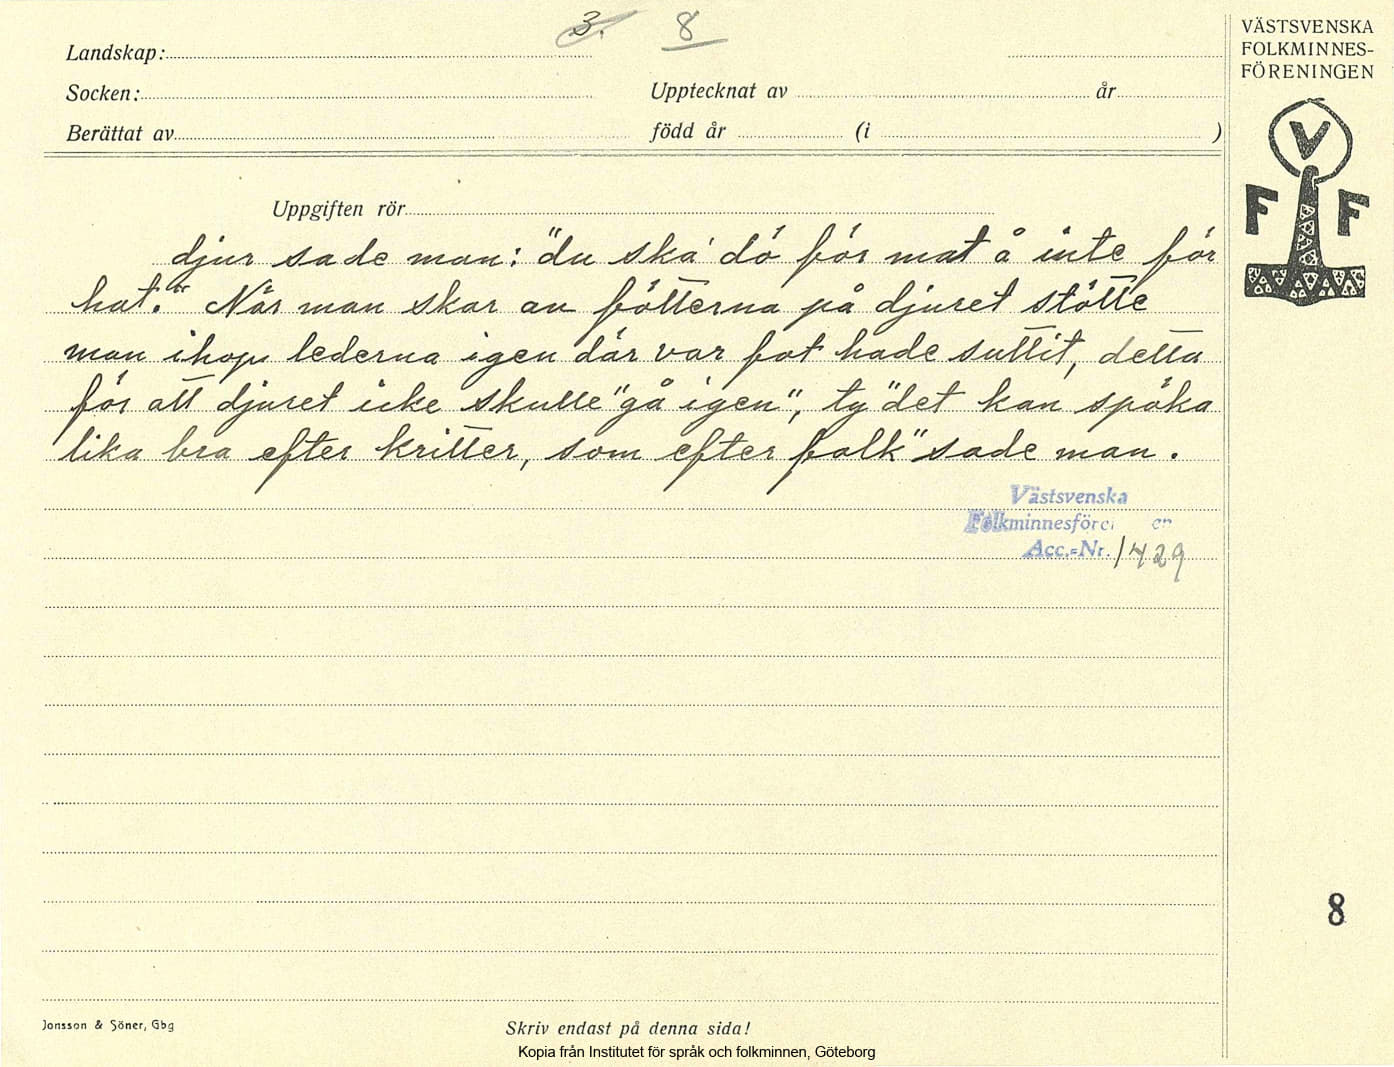 3. 8
VÄSTSVENSKA
FOLKMINNES-
FÖRENINGEN
V
F F
Landskap:
Socken: Upptecknat av år
Berättat av född år (i )
Uppgiften rör
djur sade man: "du ska' dö för mat å inte för
hat." När man skar av fötterna på djuret stötte
man ihop lederna igen där var fot hade suttit, detta
för att djuret icke skulle "gå igen", ty "det kan spöka
lika bra efter kritter, som efter folk" sade man.
Västsvenska
Folkminnesföre en
Acc.-Nr. 1429
8
Jonsson & Söner, Gbg
Skriv endast på denna sida!
Kopia från Institutet för språk och folkminnen, Göteborg